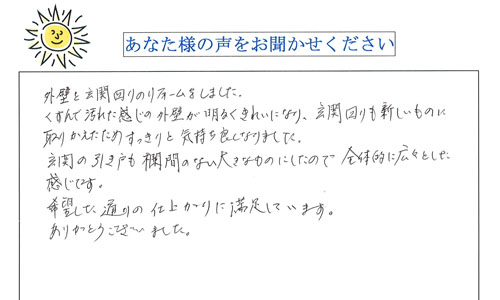 あなた様の声をお聞かせください
外壁と玄関回りのリフォームをしました。
くすんで汚れた感じの外壁が明るくきれいになり、玄関回りも新しいものに
取りかえたためすっきりと気持ち良くなりました。
玄関の引き戸も欄間のない大きなものにしたので全体的に広々とした
感じです。
希望した通りの仕上がりに満足しています。
ありがとうございました。